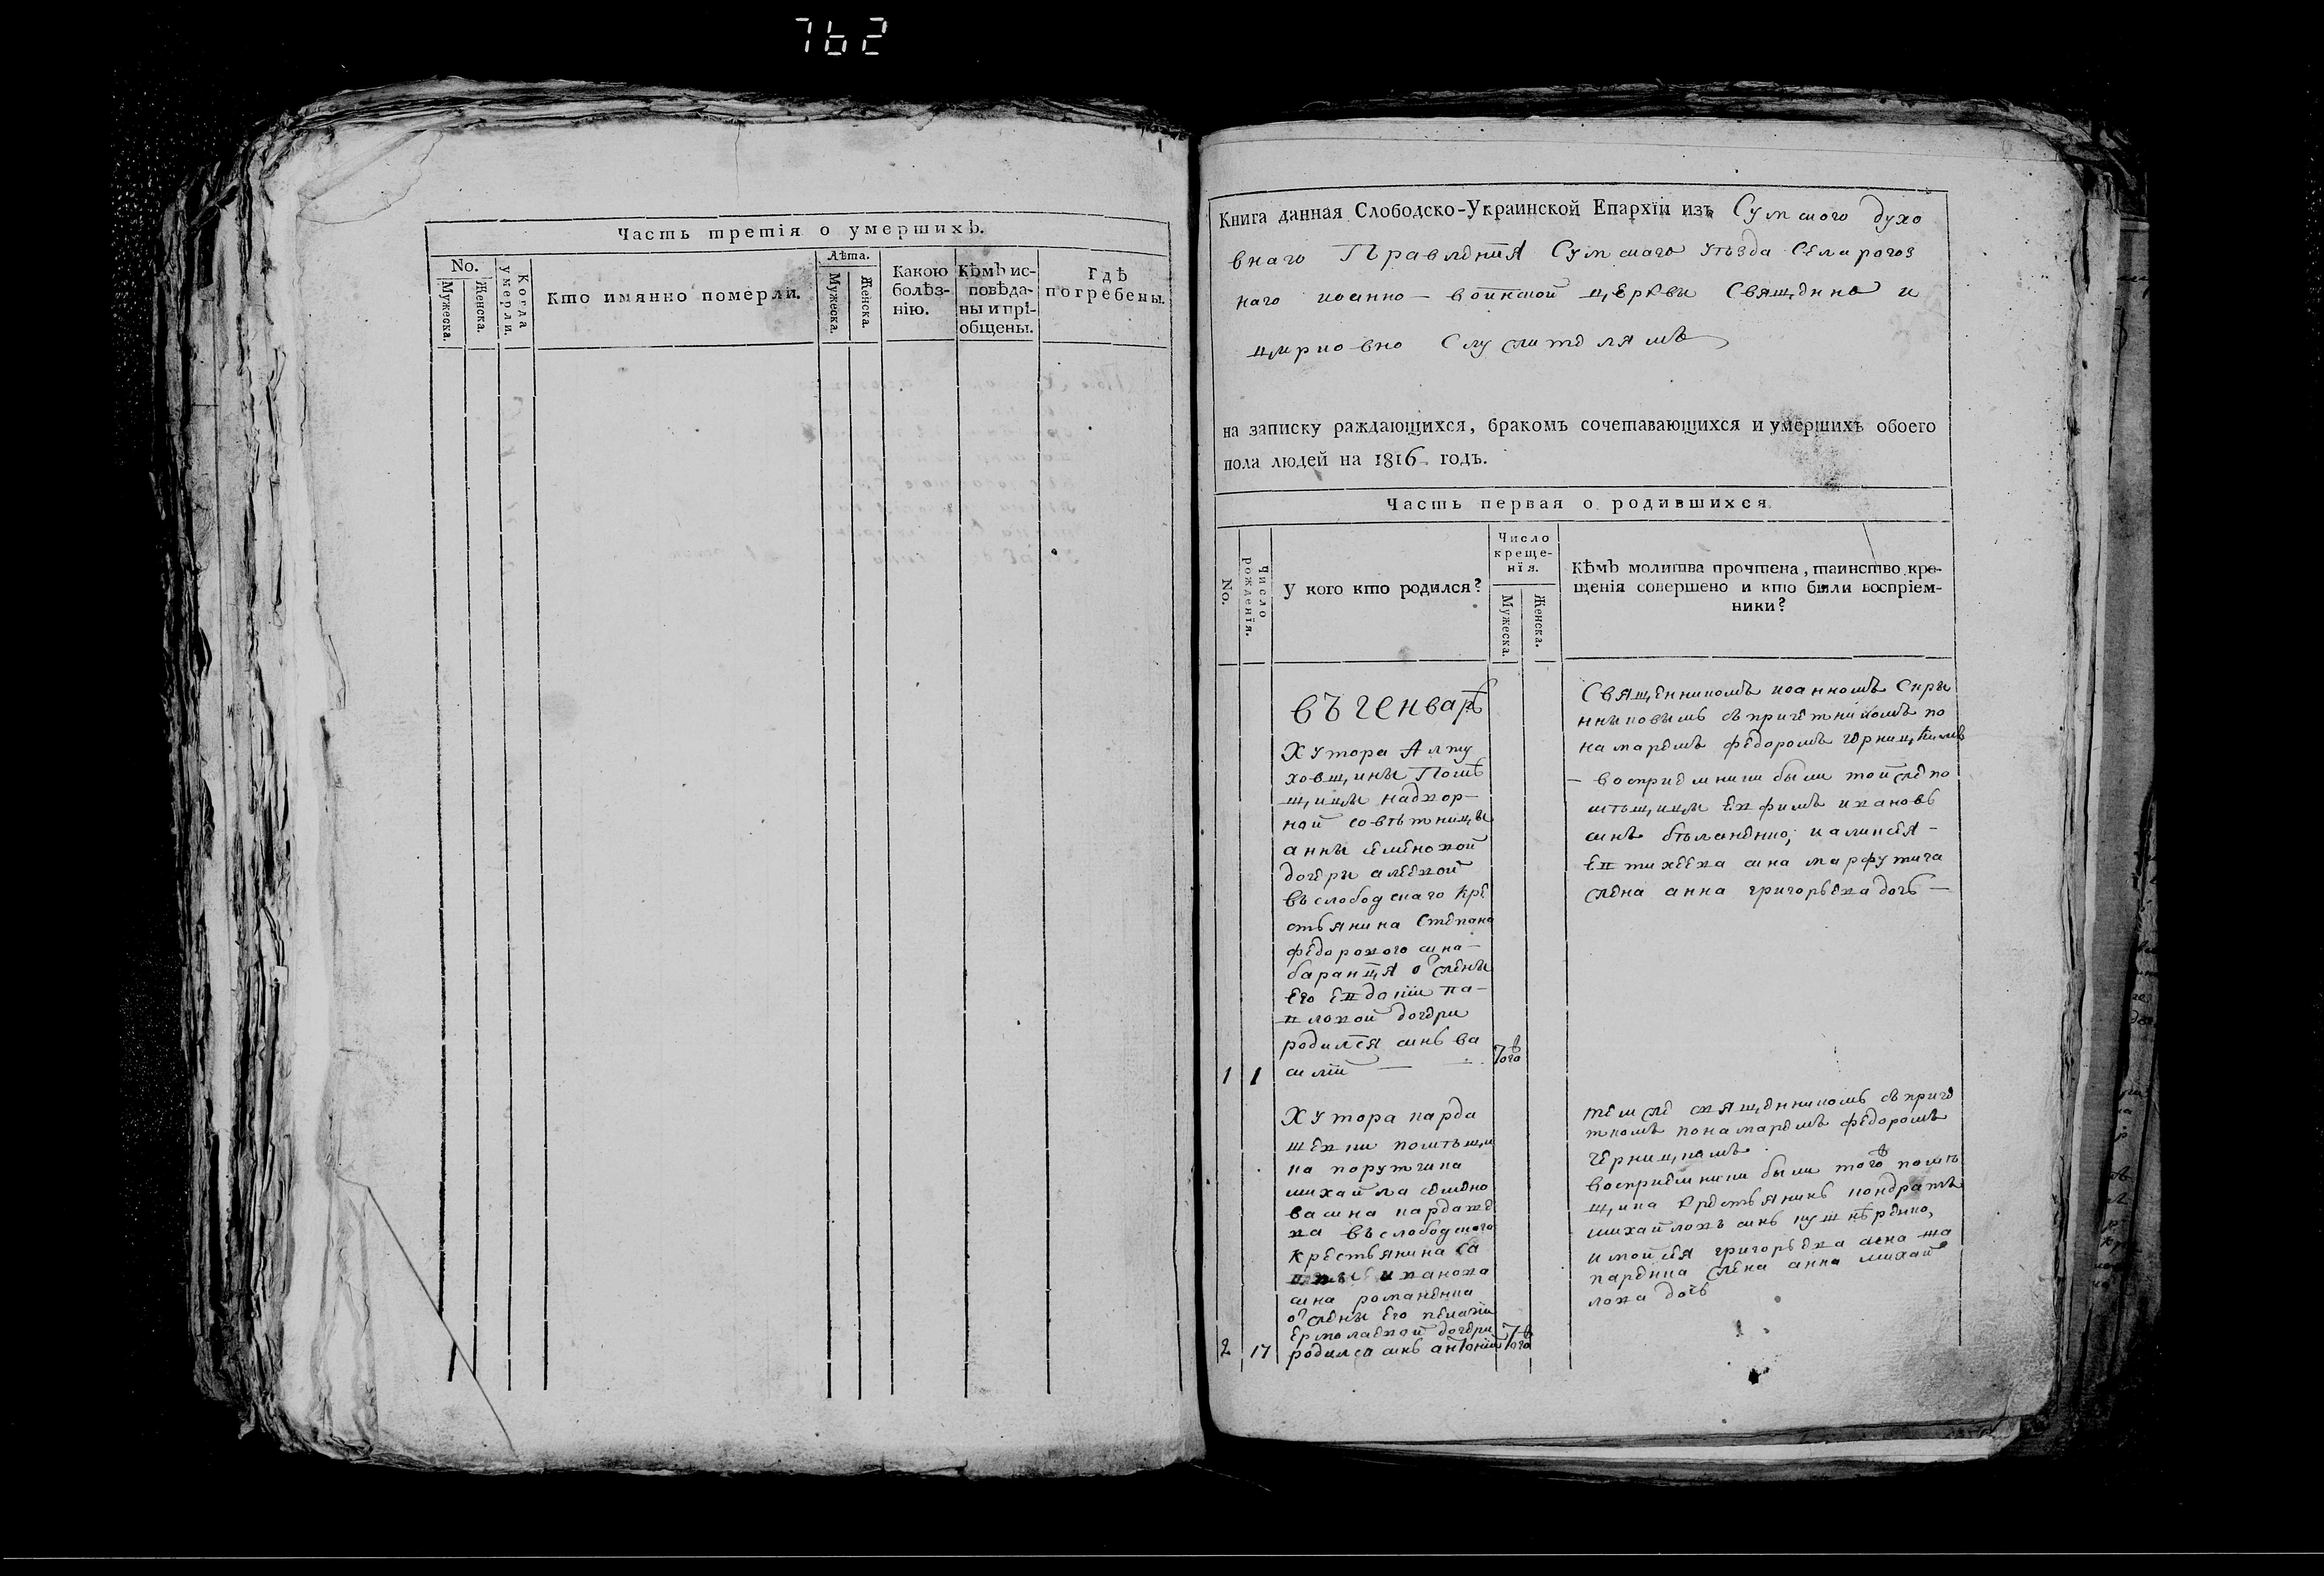 762
Часть третія о умершихъ.
No.
Мужеска.
Женска.
Когда умерли.
Кто имянно померли.
Лѣта.
Мужеска.
Женска.
Какою болѣз-
нію.
Кѣмъ ис-
повѣда-
ны и прі-
общены.
Гдѣ
погребены.
Книга данная Слободско-Украинской Епархїи изъ Сумского духо
внаго Правленія Сумскаго уѣзда Села рогоз
наго иоанно-воинской церкви Священно и
церковно служителямъ
на записку раждающихся, бракомъ сочетавающихся и умершихъ обоего
пола людей на 1816 годъ.
Часть первая о родившихся
No.
Число рожденїя.
У кого кто родился?
Число
креще-
нїя.
Мужеска.
Женска.
Кѣмъ молитва прочтена, таинство кре-
щенія совершено и кто были воспріем-
ники?
въ генварѣ
Хутора Алту
ховщины Помѣ
щицы надвор-
ной совѣтницы
анны семеновой
дочери
въслободскаго кре
стьянина Степана
федорового сина
баранця о жены
его евдокіи па-
вловой дочери
родился синъ ва
1 1 силій 7ого
Священникомъ иоанномъ Скры
нниковымъ съ причетникомъ по
намаремъ федоромъ черницкимъ
- восприемники были той же по
мѣщицы ефимъ ивановъ
синъ и аликсея
евтихеева сина марфутича
жена анна григорьева дочь -
Хутора карда
шевки помѣщи
ка поручика
михайла семено
ва сина кардаше
ва въслободского
крестьянина са
иванова
сина романенка
о жены его пелагіи
ермолаевой дочери
2 17 родился синъ антоній 7ого
темже священникомъ съ приче
тникомъ понамаремъ федоромъ
черницкимъ
восприемники были того помѣ
щика крестьянинъ кондратъ
михайловъ синъ кушнѣренко,
и мойсея григорьева сина ма
каренка жена анна михай
лова дочь